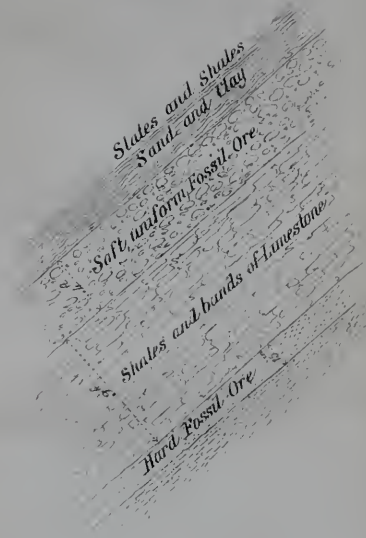 Slates and Shales
Sand and Clay
Soft uniform Fossil Ore
Shales and bands of Limestone
Hard Fossil Ore